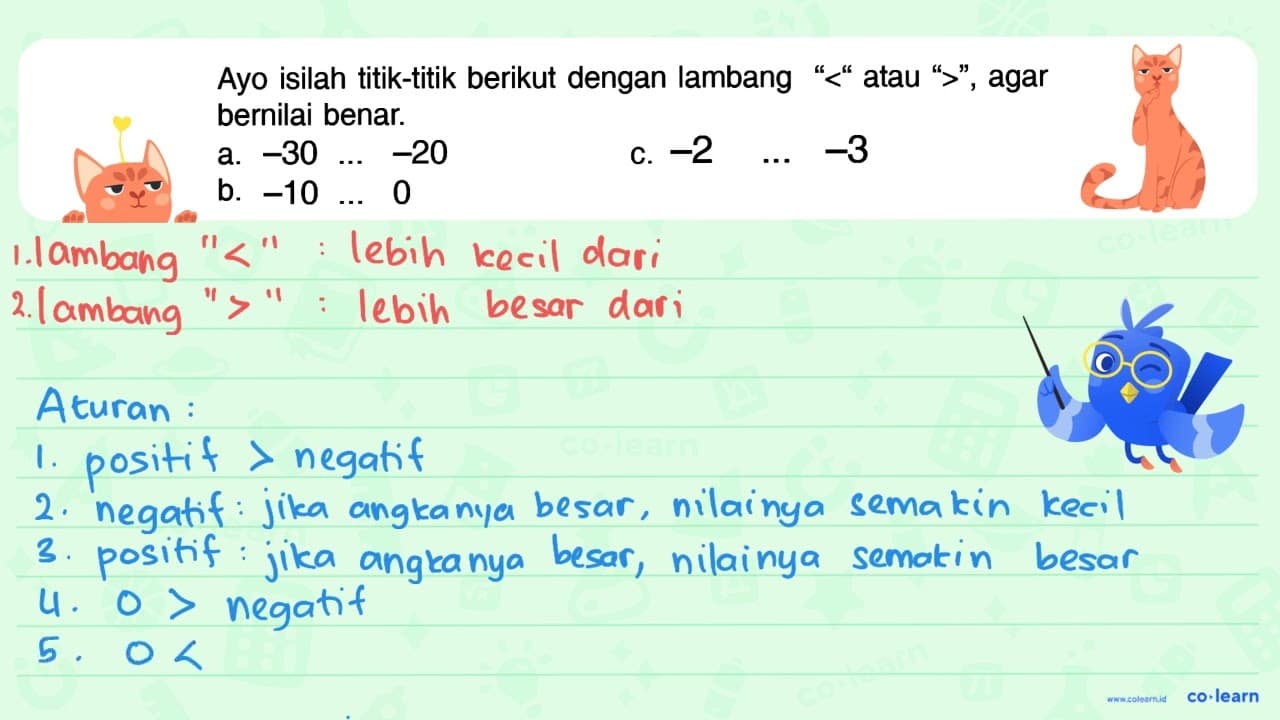 Ayo isilah titik-titik berikut dengan lambang “<“ atau “>”, agar
bernilai benar.
a. –30 ... –20 c. –2 ... –3
b. –10 ... 0
1. lambang "<" : lebih kecil dari
2. lambang ">" : lebih besar dari
Aturan :
1. positif > negatif
2. negatif : jika angkanya besar, nilainya semakin kecil
3. positif : jika angkanya besar, nilainya semakin besar
4. 0 > negatif
5. 0 <
www.colearn.id co·learn